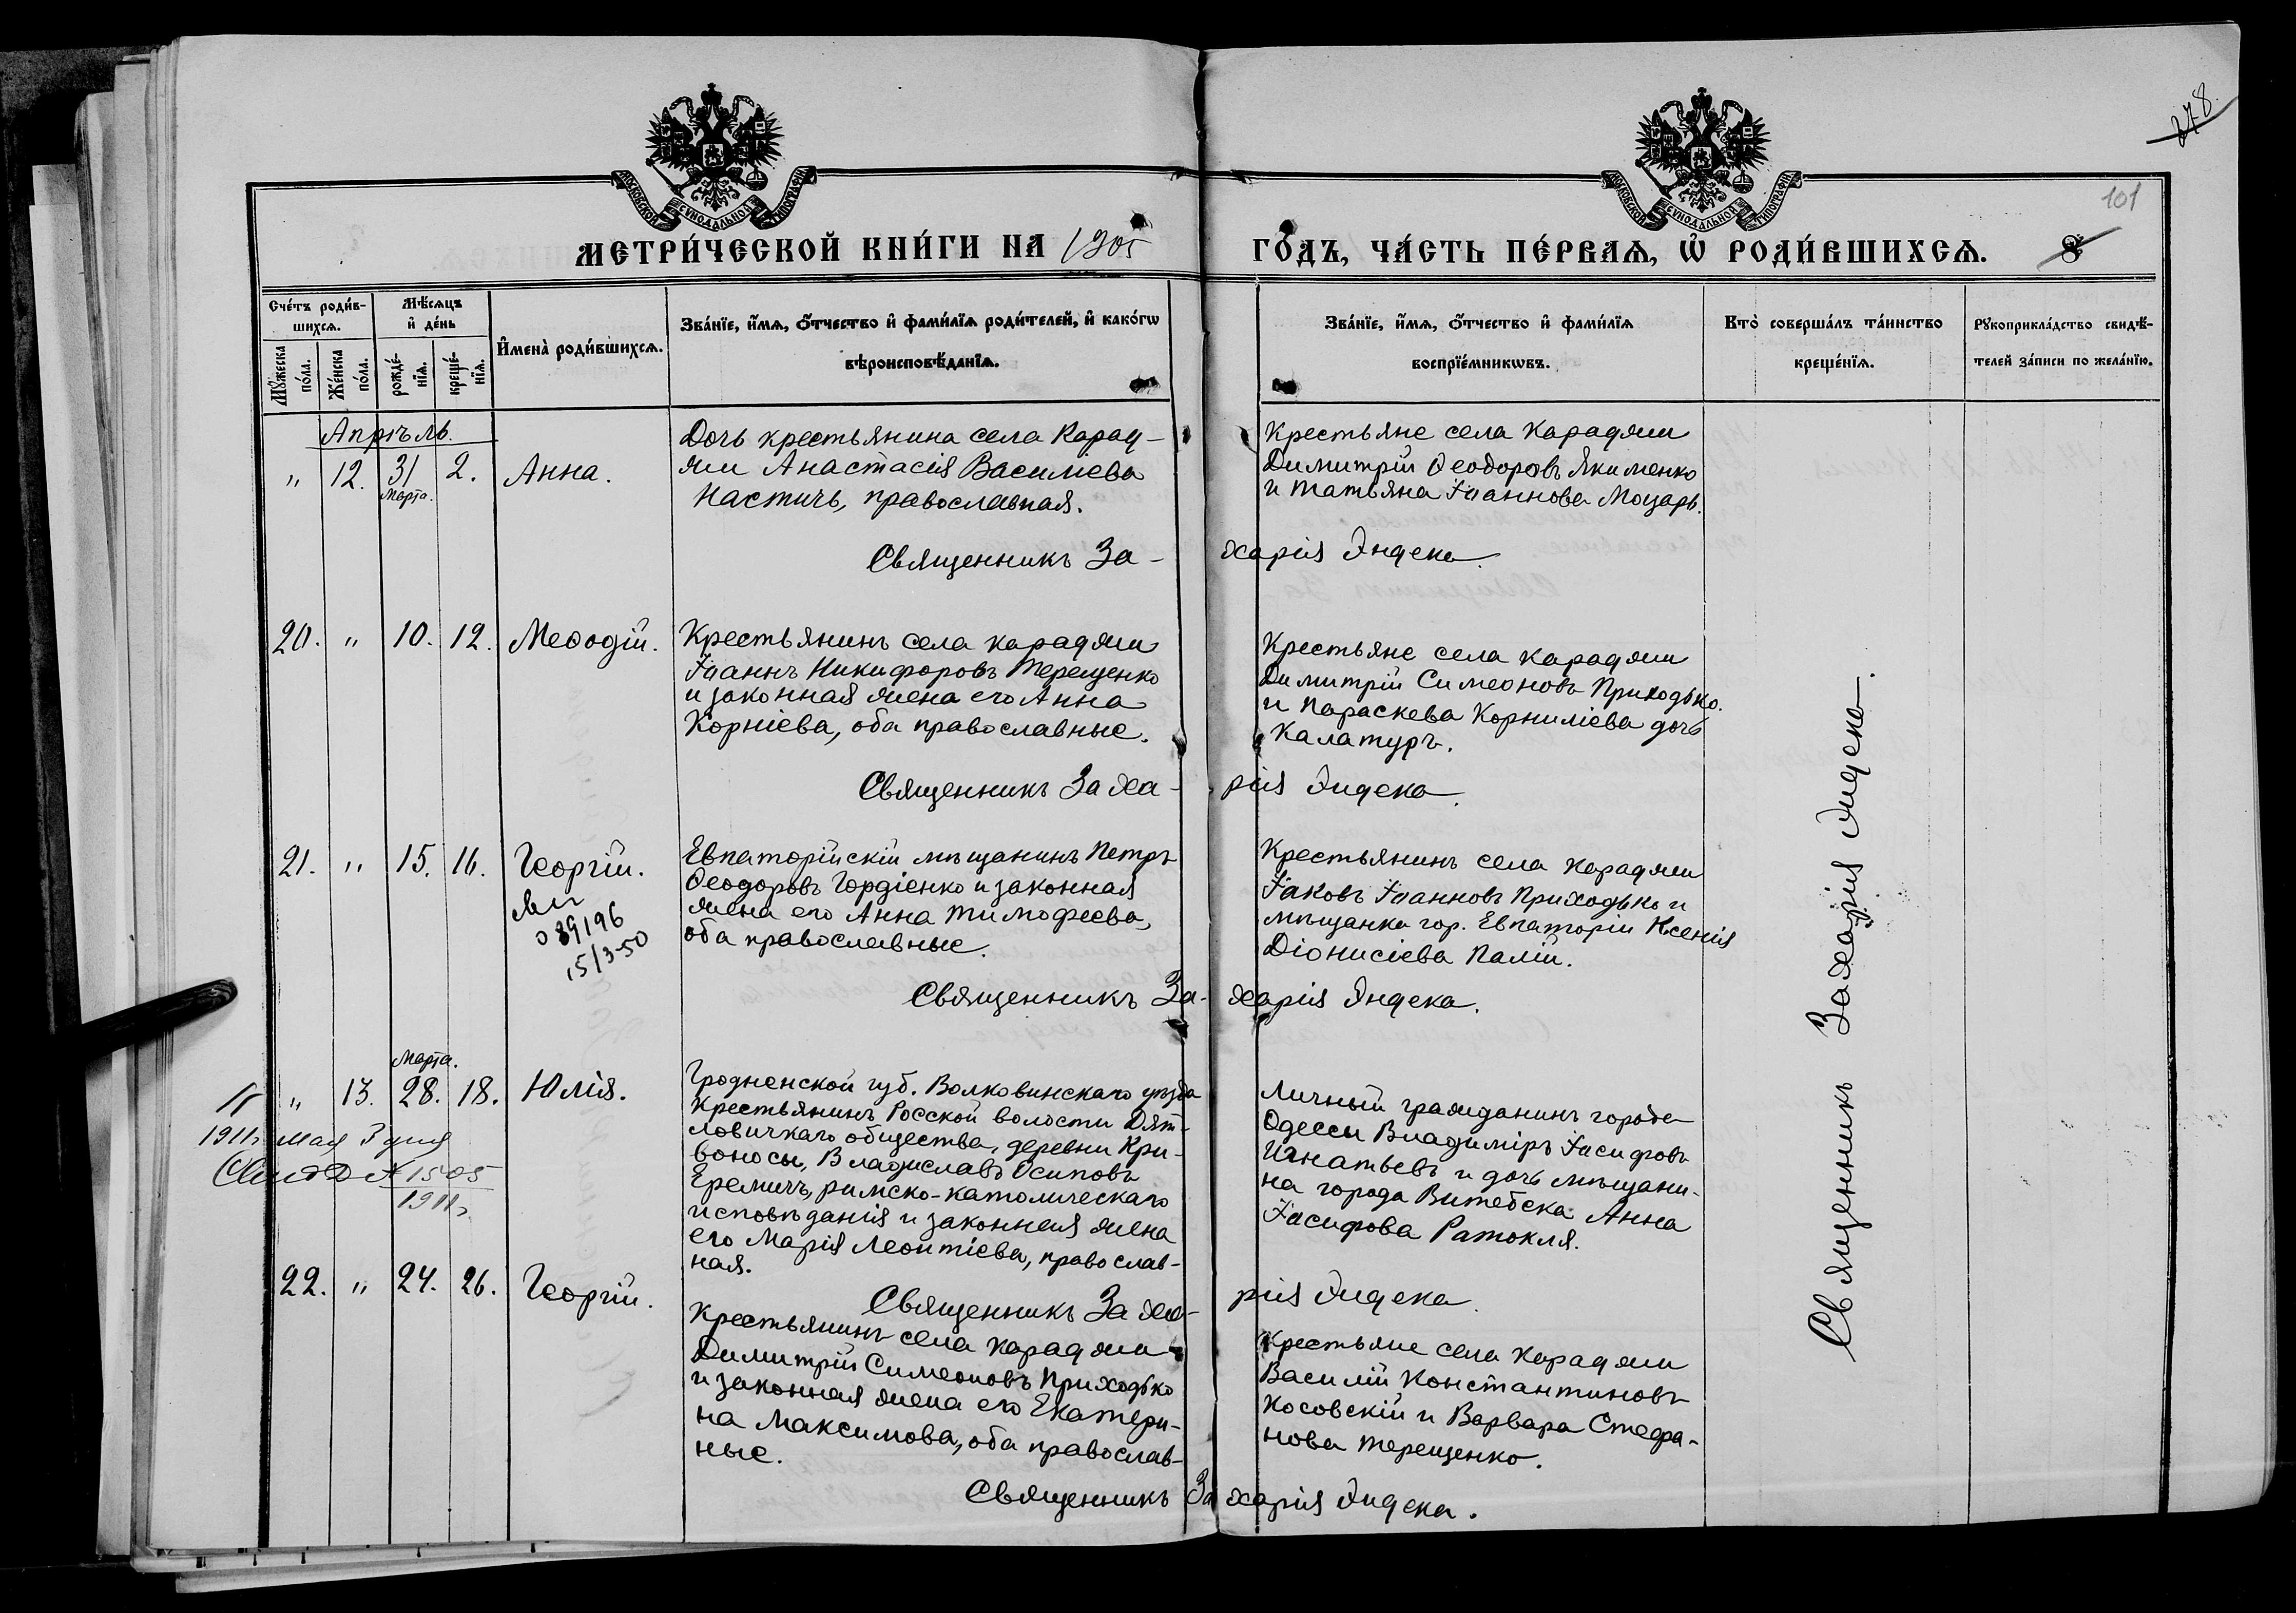 278.
101
МОСКОВСКОЙ СѴНОДАЛЬНОЙ ТИПОГРАФІИ
МОСКОВСКОЙ СѴНОДАЛЬНОЙ ТИПОГРАФІИ
МЕТРИ́ЧЕСКОЙ КНИ́ГИ НА 1905
ГО́ДЪ, ЧА́СТЬ ПЕ́РВАѦ, Ѡ҆ РОДИ́ВШИХСѦ.
Сче́тъ роди́в-
шихсѧ.
Мѣ́сѧцъ
и҆ де́нь
Мꙋ́жеска
по́ла.
Же́нска
по́ла.
рожде́-
нїѧ.
креще́-
нїѧ.
И҆мена̀ роди́вшихсѧ.
Зва́нїе, и҆́мѧ, ѻ҆́тчество и҆ фами́лїѧ роди́телей, и҆ како́гѡ
вѣроисповѣ́данїѧ.
Зва́нїе, и҆́мѧ, ѻ҆́тчество и҆ фами́лїѧ
воспрїе́мникѡвъ.
Кто̀ соверша́лъ та́инство
креще́нїѧ.
Рꙋкоприкла́дство свидѣ́-
телей за́писи по жела́нїю.
Апрѣль.
" 12. 31 2. Анна.
Марта.
Дочь крестьянина села Карад-
жи Анастасія Васильева
Настичъ, православная.
Крестьяне села Караджи
Димитрій Ѳеодоровъ Якименко
и Татьяна Іоаннова Моцарь.
Священникъ Захарія Индека.
20. " 10. 12. Меѳодій.
Крестьянинъ села Караджи
Іоаннъ Никифоровъ Терещенко
и законная жена его Анна
Корніева, оба православные.
Крестьяне села Караджи
Димитрій Симеоновъ Приходько.
и Параскева Корниліева дочь
Калатуръ.
Священникъ Захарія Индека.
21. " 15. 16. Георгій.
039196
15/3-50
Евпаторійскій мѣщанинъ Петръ
Ѳеодоровъ Гордіенко и законная
жена его Анна Тимофеева,
оба православные.
Крестьянинъ села Караджи
Іаковъ Іоанновъ Приходько и
мѣщанка гор. Евпаторіи Ксенія
Діонисіева Палій.
Священникъ Захарія Индека.
Марта.
" 13. 28. 18. Юлія.
1911г. мая 3 дня
1505
1911г.
Гродненской губ. Волковинскаго уѣзда
Крестьянинъ Росской волости Дят-
ловичкаго общества, деревни Кри-
воносы, Владиславъ Осиповъ
Еремичъ, римско-католическаго
исповѣданія и законная жена
его Марія Леонтіева, православ-
ная.
Личный гражданинъ города
Одессы Владиміръ Іосифовъ
Игнатьевъ и дочь мѣщани-
на города Витебска Анна
Іосифова Ратокля.
Священникъ Захарія Индека.
22. " 24. 26. Георгій.
Крестьянинъ села Караджи
Димитрій Симеоновъ Приходько
и законная жена его Екатери-
на Максимова, оба православ-
ные.
Крестьяне села Караджи
Василій Константиновъ
Косовскій и Варвара Стефа-
нова Терещенко.
Священникъ Захарія Индека.
Священникъ Захарія Индека.